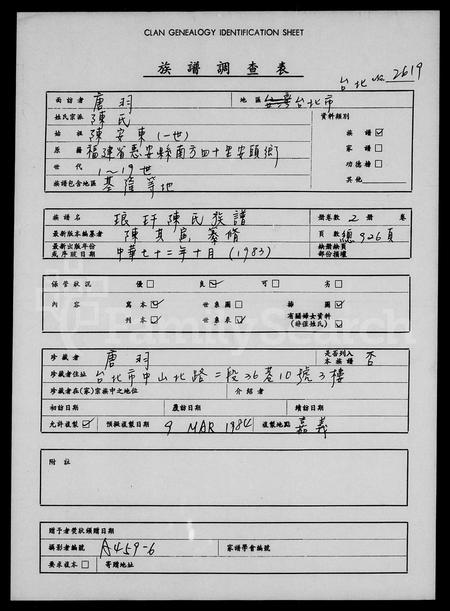 CLAN GENEALOGY IDENTIFICATION SHEET
族譜調查表
台北 No. 2619
面訪者 唐羽 地區 台北市
姓氏宗派 陳氏 資料類別
始祖 陳安東(一世) 族譜 ☑
原籍 福建省惠安縣南方四十里安頭鄉 家譜 □
世代 1~19世 功德榜 □
族譜包含地區 基隆等地 其他
族譜名 琅玕陳氏族譜 冊卷數 2 冊 卷
最新版本編纂者 陳其寅 纂脩 頁數 總926頁
最新出版年份或序跋日期 中華七十二年十月 (1983) 缺冊缺頁部份損壞
保管狀況 優 □ 良 ☑ 可 □ 劣 □
內容 寫本 ☑ 世系圖 □ 插圖 ☑
刊本 ☑ 世系表 ☑ 有關婦女資料(除僅姓氏) ☑
珍藏者 唐羽 是否列入本族譜 否
珍藏者住址 台北市中山北路二段36巷10號3樓
珍藏者在(家)宗族中之地位 介紹者
初訪日期 覆訪日期 續訪日期
允許複製 ☑ 預擬複製日期 9 MAR 1984 複製地點 嘉義
附註
贈予者獎狀頒贈日期
攝影者編號 A459-6 家譜學會編號
要求複本 □ 寄贈地址
FamilySearch